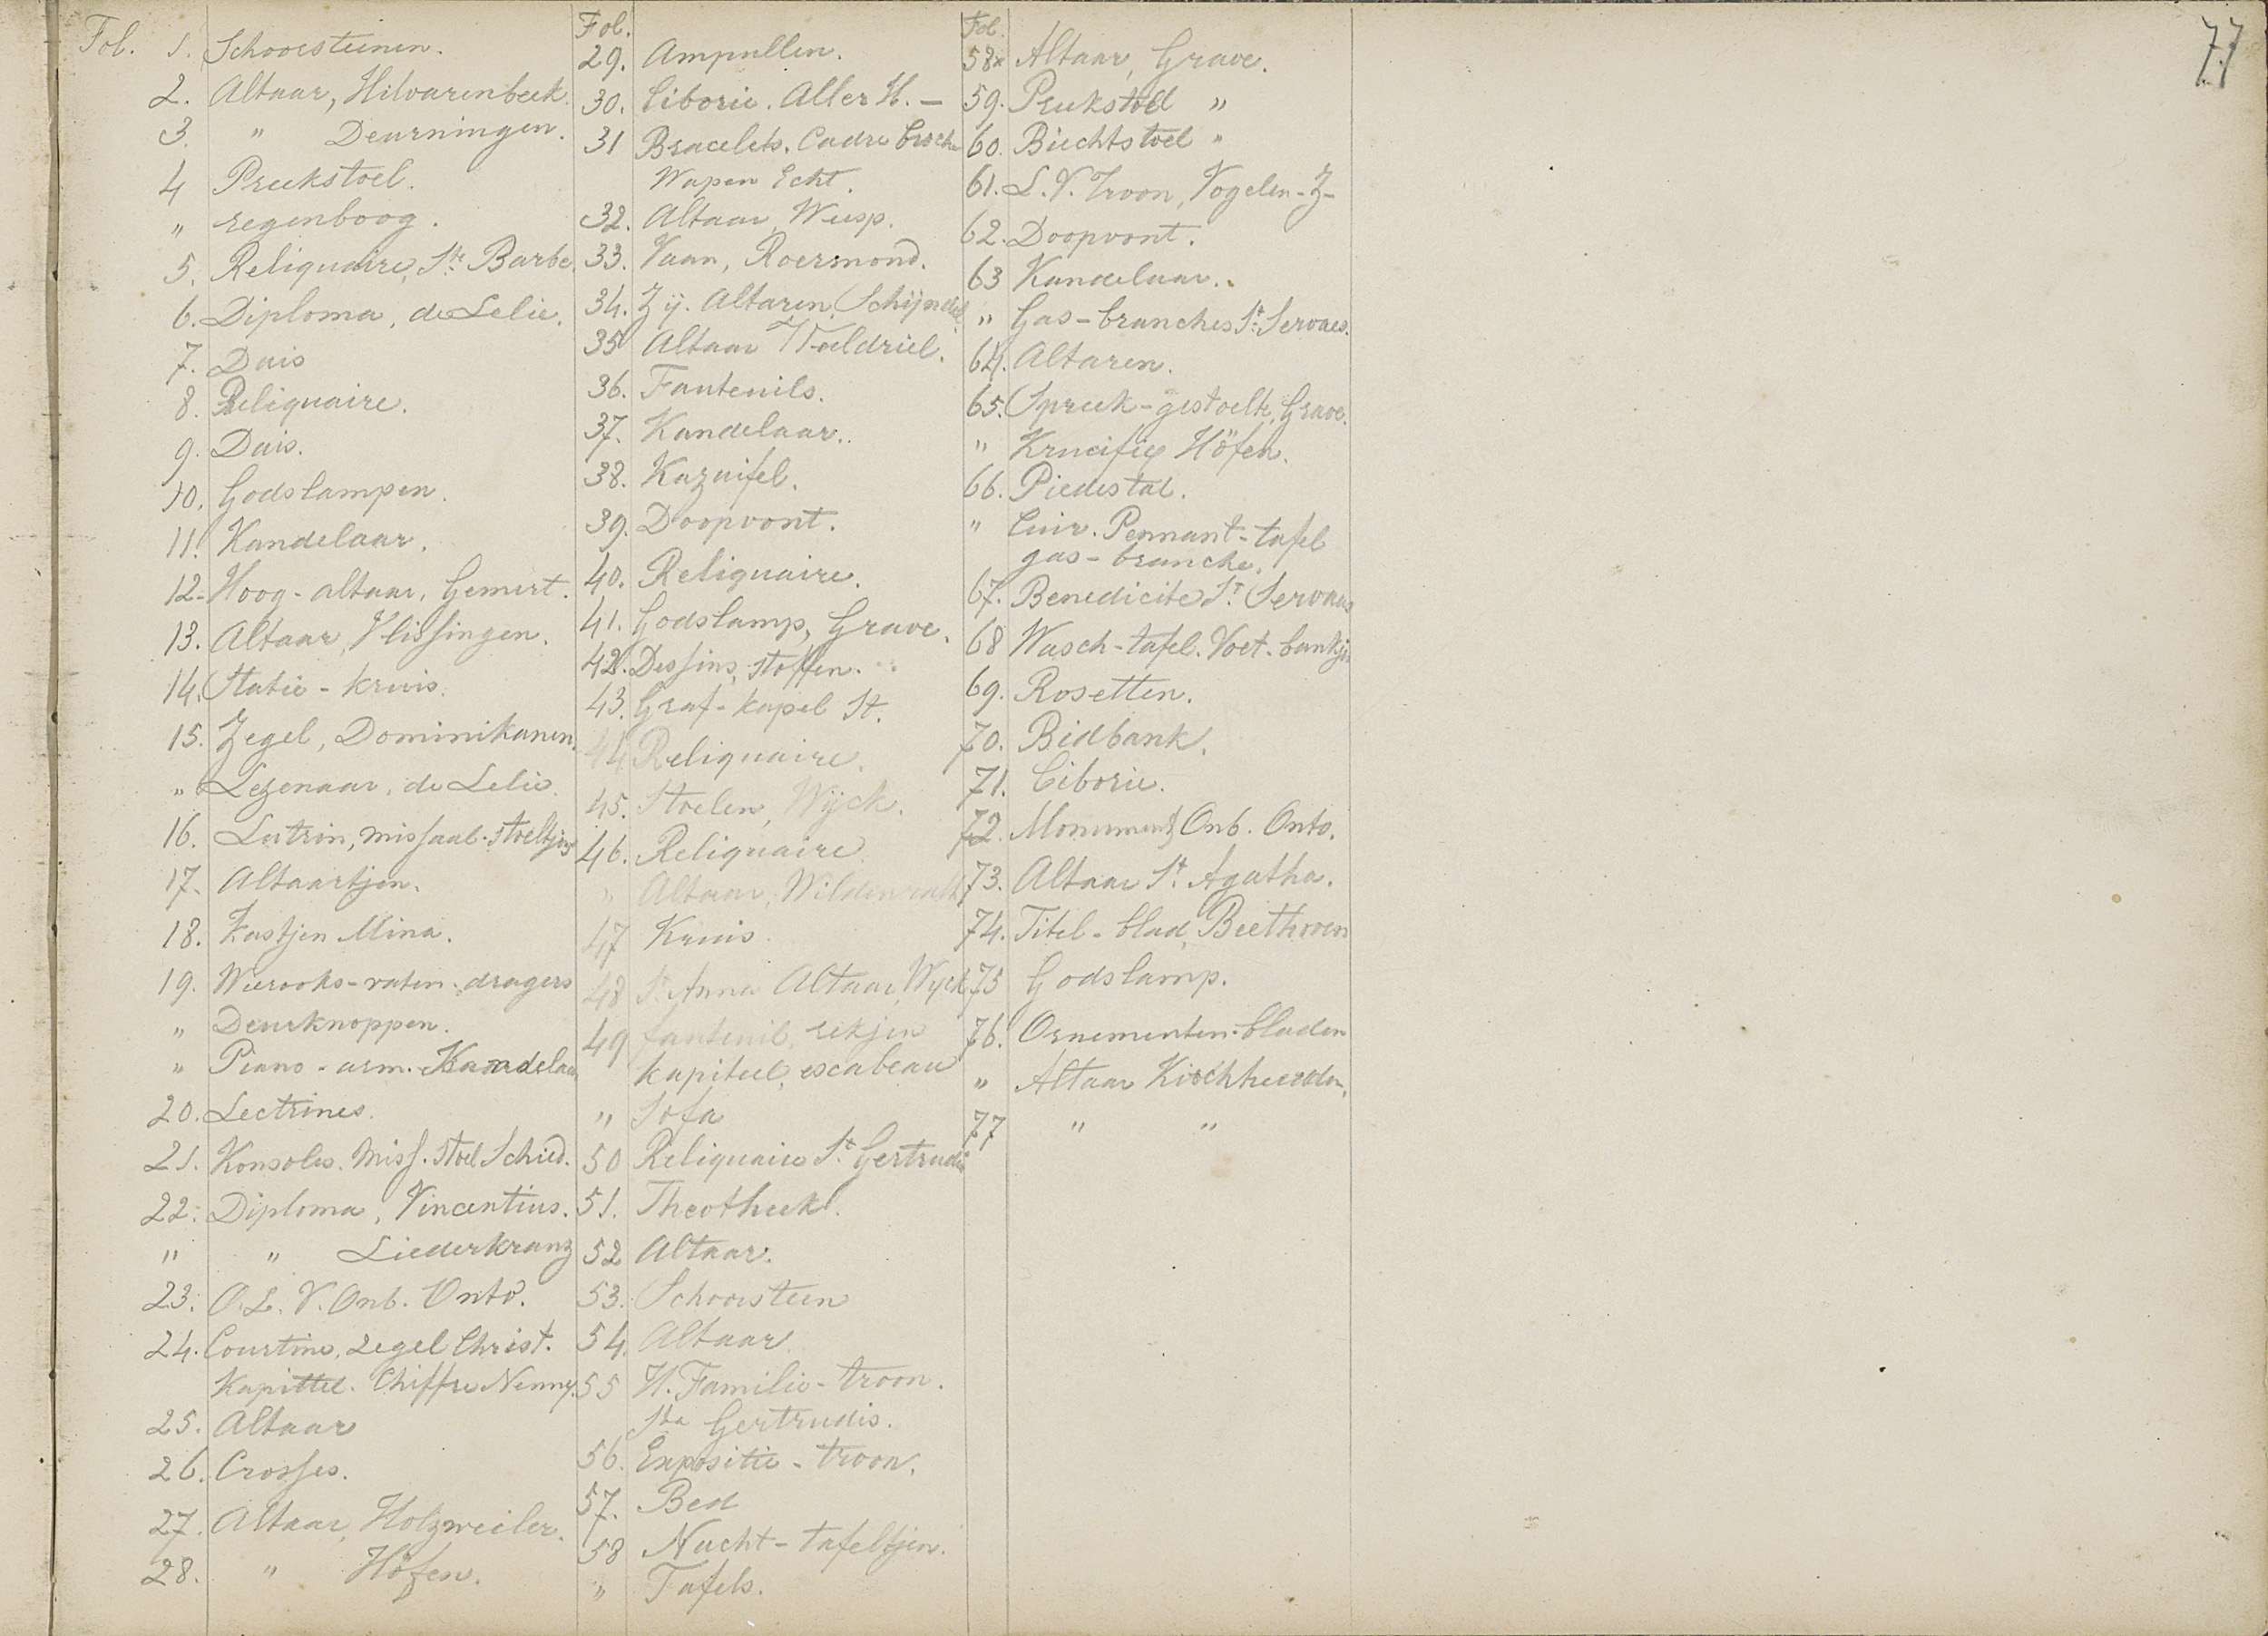 77
Fol. 1. Schoorsteenen.
2. Altaar, Hilvarenbeek.
3. " Deurningen.
4 Preekstoel.
" regenboog.
5. Reliquaire, Ste Barbe.
6. Diploma, de Lelie.
7. Dais
8. Reliquaire.
9. Dais.
10. Godslampen.
11. Kandelaar.
12. Hoog-altaar, Gemert.
13. Altaar, Vlissingen.
14. Statie-kruis.
15. Zegel, Dominikanen.
" Lezenaar, de Lelie.
16. Lutrin, missaal-stoeltjes
17. Altaartjen.
18. Kastjen Mina.
19. Wierooks-vaten-dragers
" Deurknoppen.
" Piano-arm-Kandelaar
20. Lectrines.
21. Konsoles. Miss. stoel Schied.
22. Diploma, Vincentius.
" " Liederkranz
23. O. L. V. Onb. Ontv.
24. Courtine, zegel Christ.
Kapittel. Chiffre Nenny.
25. Altaar
26. Crosses.
27. Altaar, Holzweiler.
28. " Höfen.
Fol.
29. Ampullen.
30. Ciborie. Aller H. —
31 Bracelets. Cadre broche
Wapen Echt.
32. Altaar, Weesp.
33. Vaan, Roermond.
34. Zij. Altaren, Schijndel.
35 Altaar Veldriel.
36. Fauteuils.
37. Kandelaar.
38. Kazuifel.
39. Doopvont.
40. Reliquaire.
41. Godslamp, Grave.
42. Dessins, stoffen.
43. Graf-kapel St.
44 Reliquaire.
45. Stoelen, Wijck.
46. Reliquaire
" Altaar, Wildenrath
47 Kruis
48 St. Anna Altaar, Wyck
49 fauteuil, rekjen
kapiteel, escabeau
" Sofa
50 Reliquaire St. Gertrudis
51. Theotheek.
52 Altaar.
53. Schoorsteen
54. Altaar
55 H. Familie-troon.
Sta Gertrudis.
56. Expositie-troon.
57. Bed
58 Nacht-tafeltjen.
" Tafels.
Fol.
58x Altaar, Grave.
59. Preekstoel "
60. Biechtstoel "
61. L. V. Troon, Vogelen-Z-
62. Doopvont.
63 Kandelaar.
" Gas-branches St. Servaes.
64. Altaren.
65. Spreek-gestoelte, Grave.
" Krucifix Höfen.
66. Piedestal.
" Cuir. Pennant-tafel
gas-branche.
67. Benedicite St. Servaas
68 Wasch-tafel. Voet-bankjes
69. Rosetten.
70. Bidbank.
71. Ciborie.
72. Monument, Onb. Ontv.
73. Altaar St. Agatha.
74. Titel-blad, Beethoven
75 Godslamp.
76. Ornementen-bladen
" Altaar Kirchherden.
77 " "